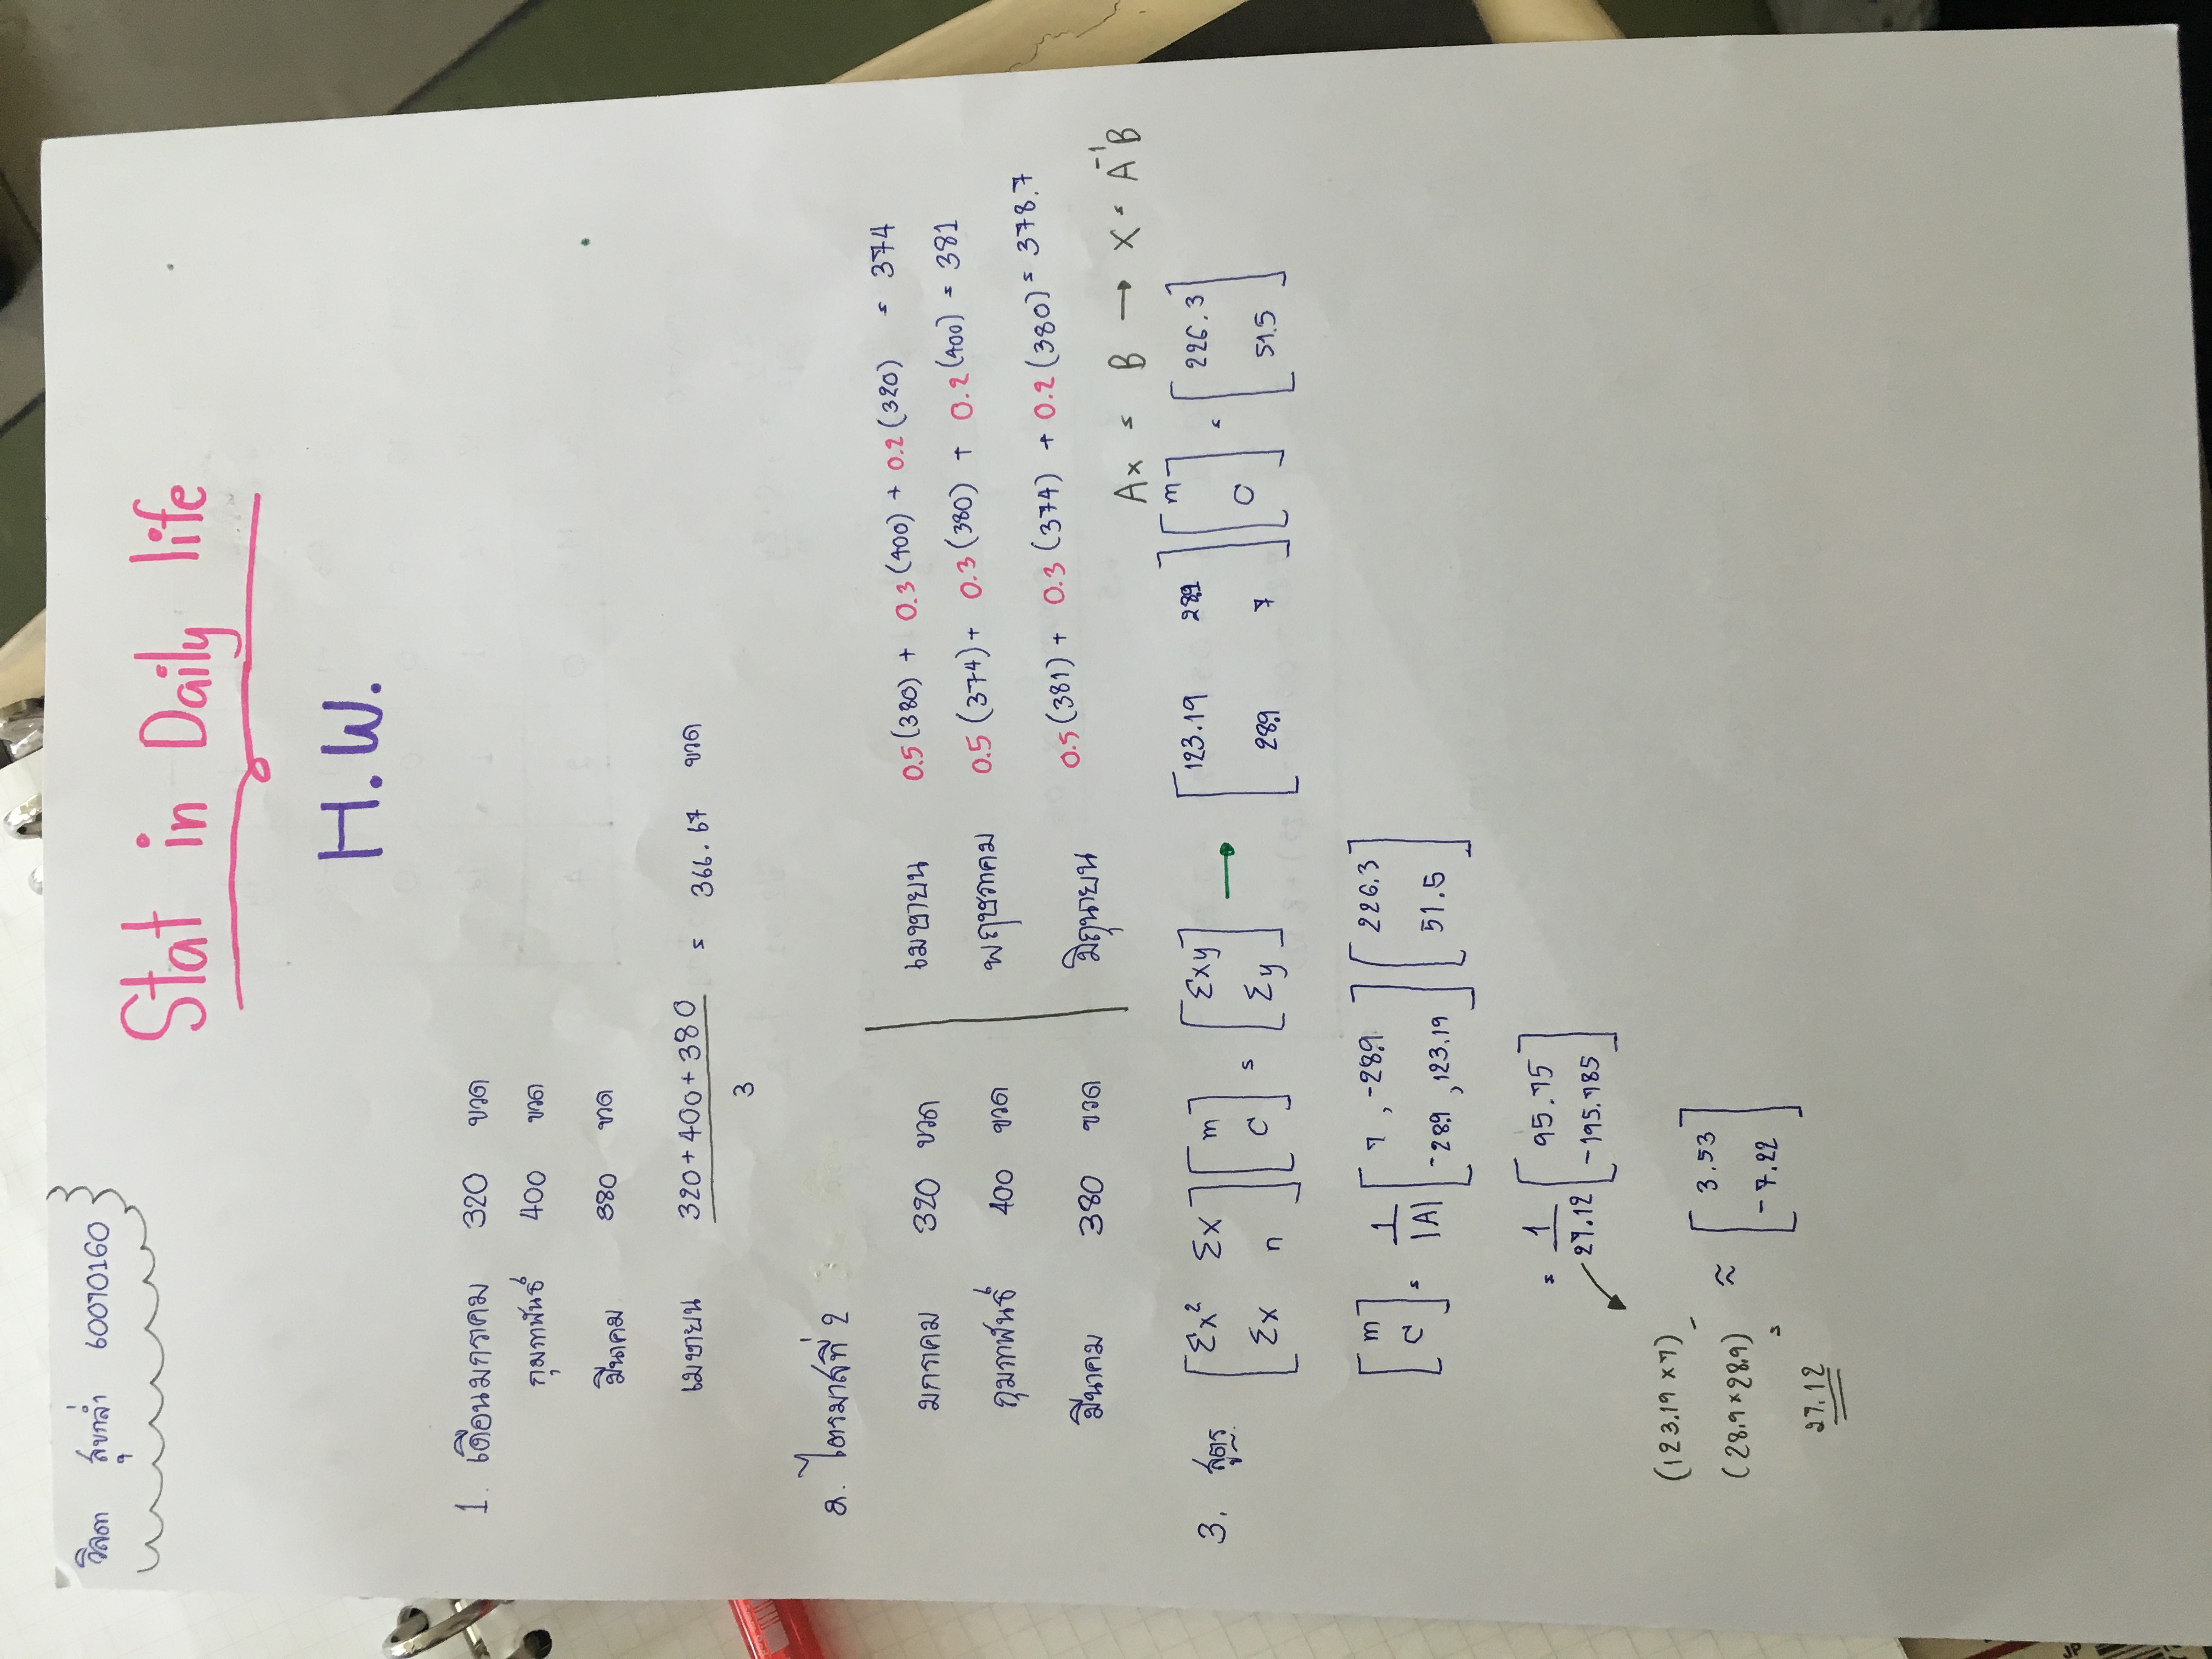 วิลดา สุขกล่ำ 60070160
Stat in Daily life
H.W.
1. เดือนมกราคม 320 ขวด
กุมภาพันธ์ 400 ขวด
มีนาคม 380 ขวด
เมษายน 320+400+380 / 3 = 366.67 ขวด
2. ไตรมาสที่ 2
มกราคม 320 ขวด
กุมภาพันธ์ 400 ขวด
มีนาคม 380 ขวด
เมษายน 0.5(380) + 0.3(400) + 0.2(320) = 374
พฤษภาคม 0.5(374) + 0.3(380) + 0.2(400) = 381
มิถุนายน 0.5(381) + 0.3(374) + 0.2(380) = 378.7
Ax = B → X = A⁻¹B
3. สูตร [Σx² Σx ; Σx n] [m ; c] = [Σxy ; Σy] → [123.19 28.9 ; 28.9 7] [m ; c] = [226.3 ; 51.5]
[m ; c] = 1/|A| [7 , -28.9 ; -28.9 , 123.19] [226.3 ; 51.5]
= 1/27.12 [95.75 ; -195.785]
(123.19 × 7) -
(28.9 × 28.9)
=
27.12
≈ [3.53 ; -7.22]